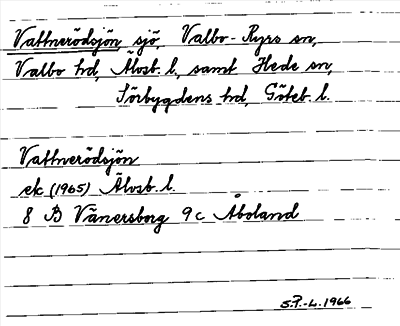 Vattnerödsjön sjö, Valbo-Ryrs sn,
Valbo hd, Älvsb. l., samt Hede sn,
Sörbygdens hd, Göteb. l.
Vattnerödsjön
ek (1965) Älvsb. l.
8 B Vänersborg 9 c Åboland
S.P.-L. 1966